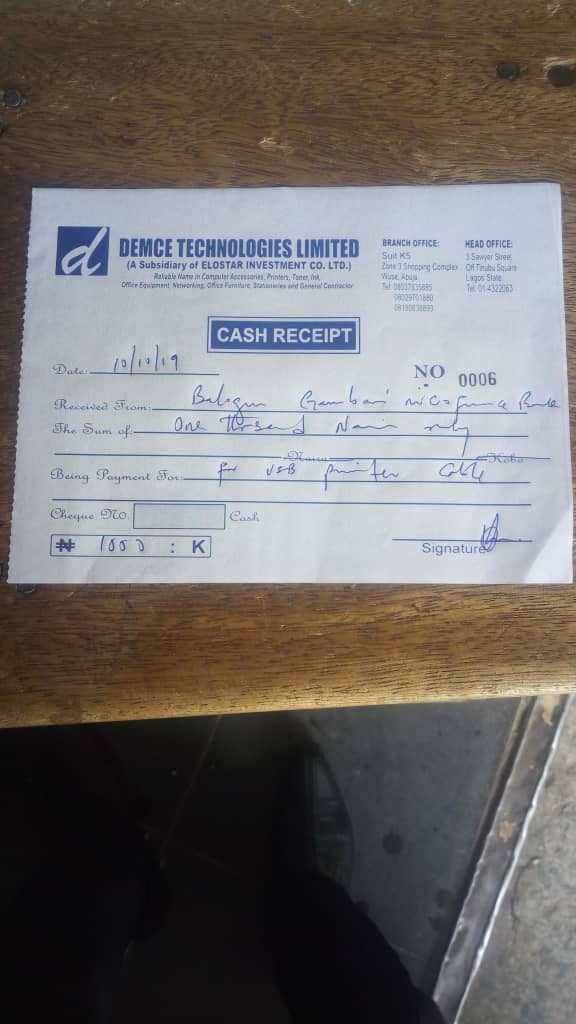 d
DEMCE TECHNOLOGIES LIMITED
(A Subsidiary of ELOSTAR INVESTMENT CO. LTD.)
Reliable Name in Computer Accessories, Printers, Toner, Ink,
Office Equipment, Networking, Office Furniture, Stationeries and General Contractor
BRANCH OFFICE:
Suit K5
Zone 3 Shopping Complex
Wuse, Abuja.
Tel: 08037835885
08029701880
HEAD OFFICE:
3 Sawyer Street
Off Tinubu Square
Lagos State.
Tel: 01-4322063
CASH RECEIPT
Date: 10/10/19
NO 0006
Received From: Balogun Gambari Microfinance Bank
The Sum of: One Thousand Naira only
Naira Kobo
Being Payment For: for USB printer Cable
Cheque No. Cash
₦ 1000 : K
Signature